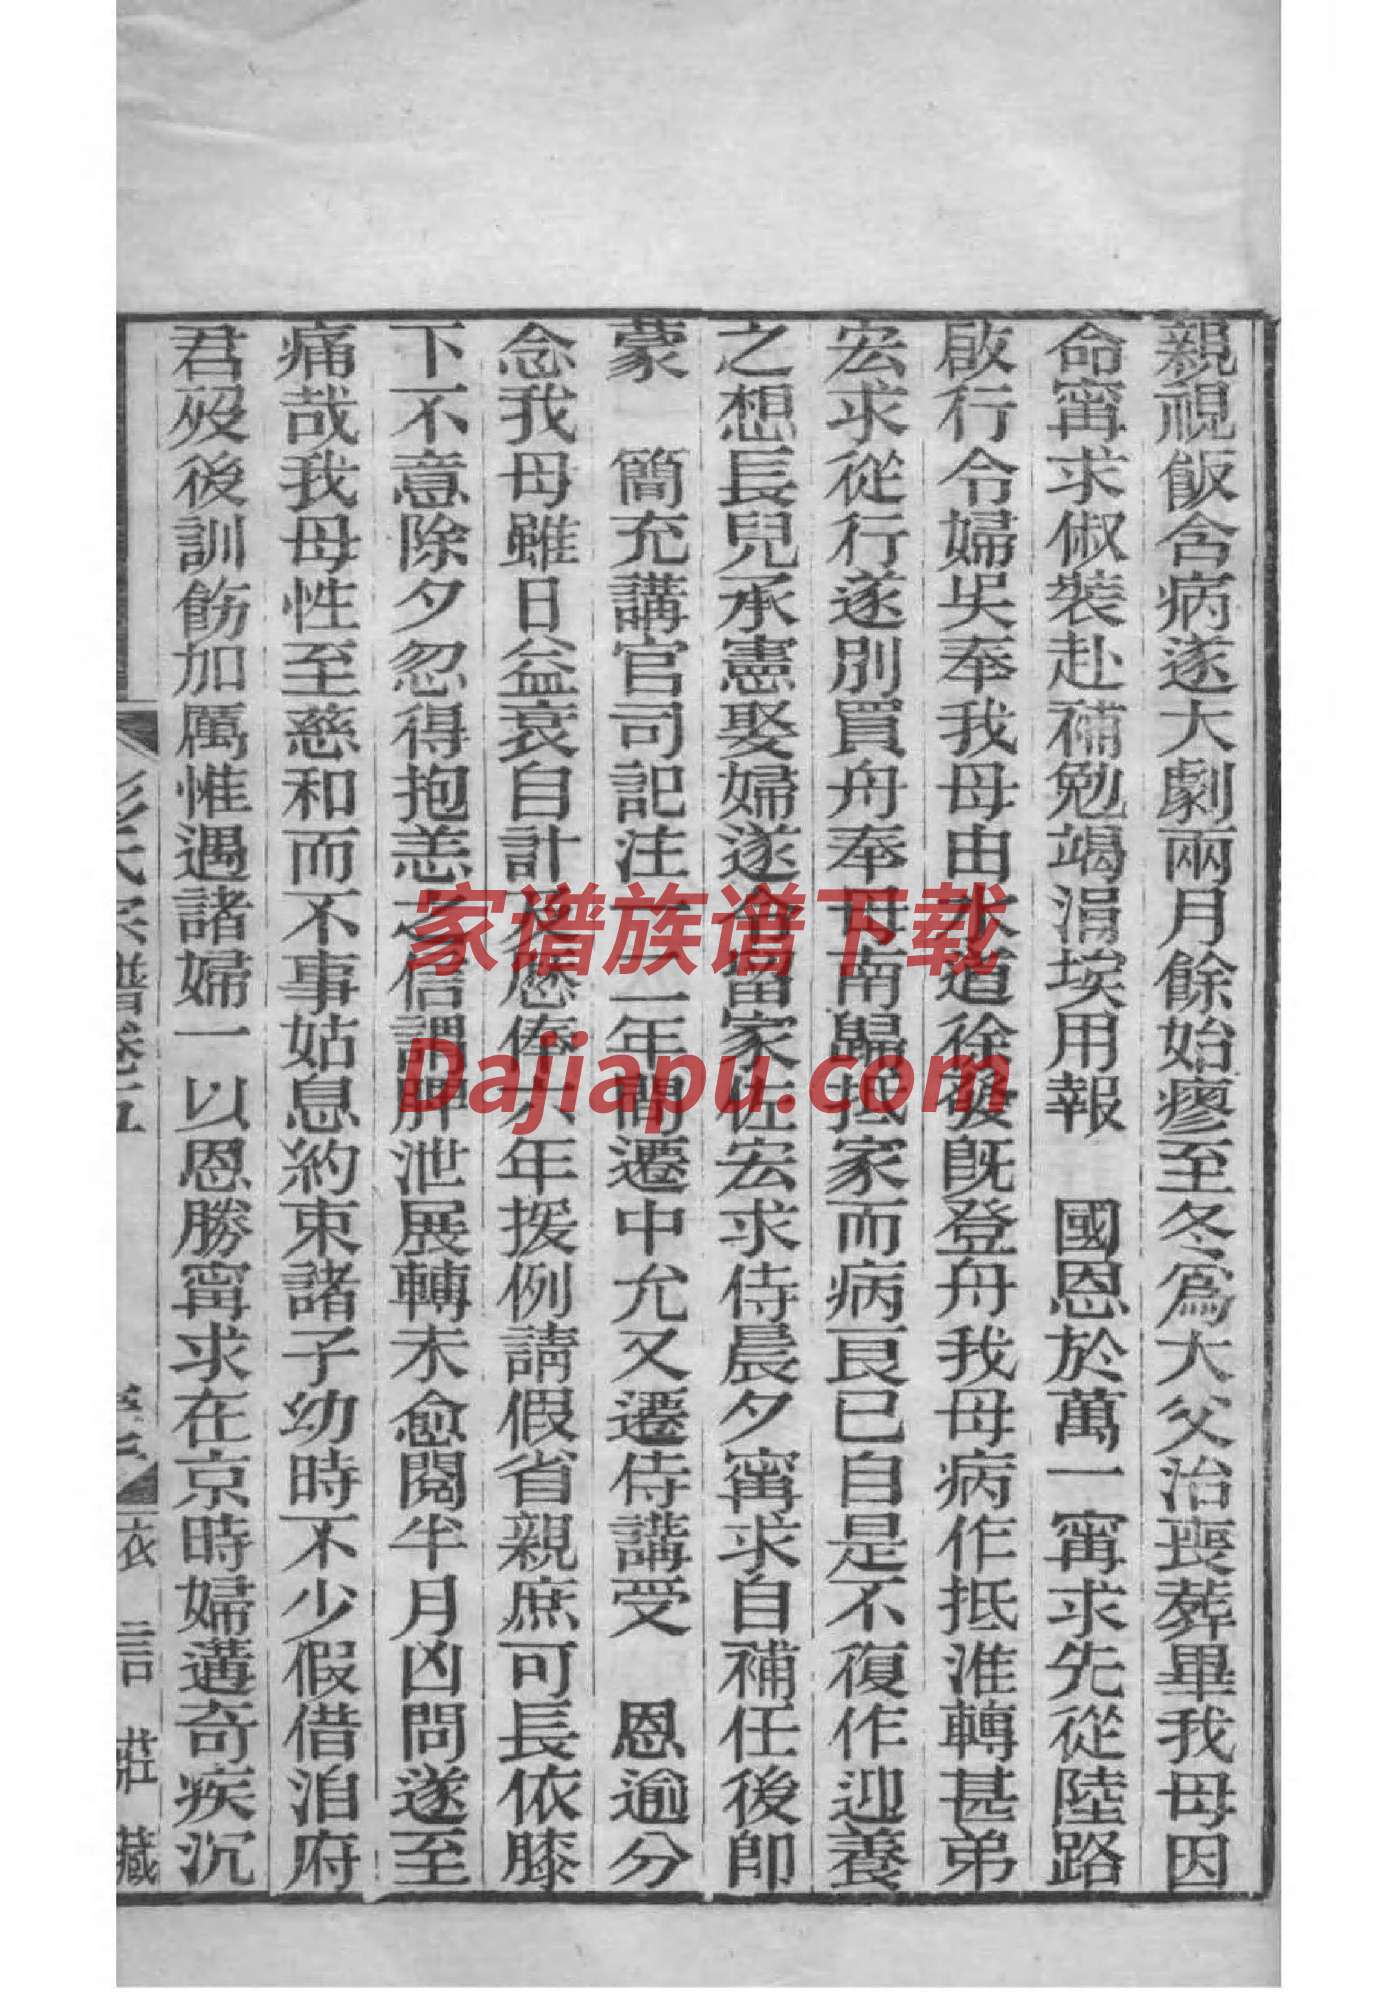 親視飯含病遂大劇兩月餘始瘳至冬爲大父治喪葬畢我母因
命甯求俶裝赴補勉竭涓埃用報　國恩於萬一甯求先從陸路
啟行令婦吳奉我母由水道徐發旣登舟我母病作抵淮轉甚弟
宏求從行遂別買舟奉母南歸抵家而病良已自是不復作迎養
之想長兒承憲娶婦遂命留家佐宏求侍晨夕甯求自補任後卽
蒙　簡充講官司記注一二年間遷中允又遷侍講受　恩逾分
念我母雖日益衰自計及歷俸六年援例請假省親庶可長依膝
下不意除夕忽得抱恙之信謂脾泄展轉未愈閱半月凶問遂至
痛哉我母性至慈和而不事姑息約束諸子幼時不少假借洎府
君歿後訓飭加厲惟遇諸婦一以恩勝甯求在京時婦遘奇疾沉
彭氏宗譜卷五
衣言莊藏
家谱族谱下载
Dajiapu.com